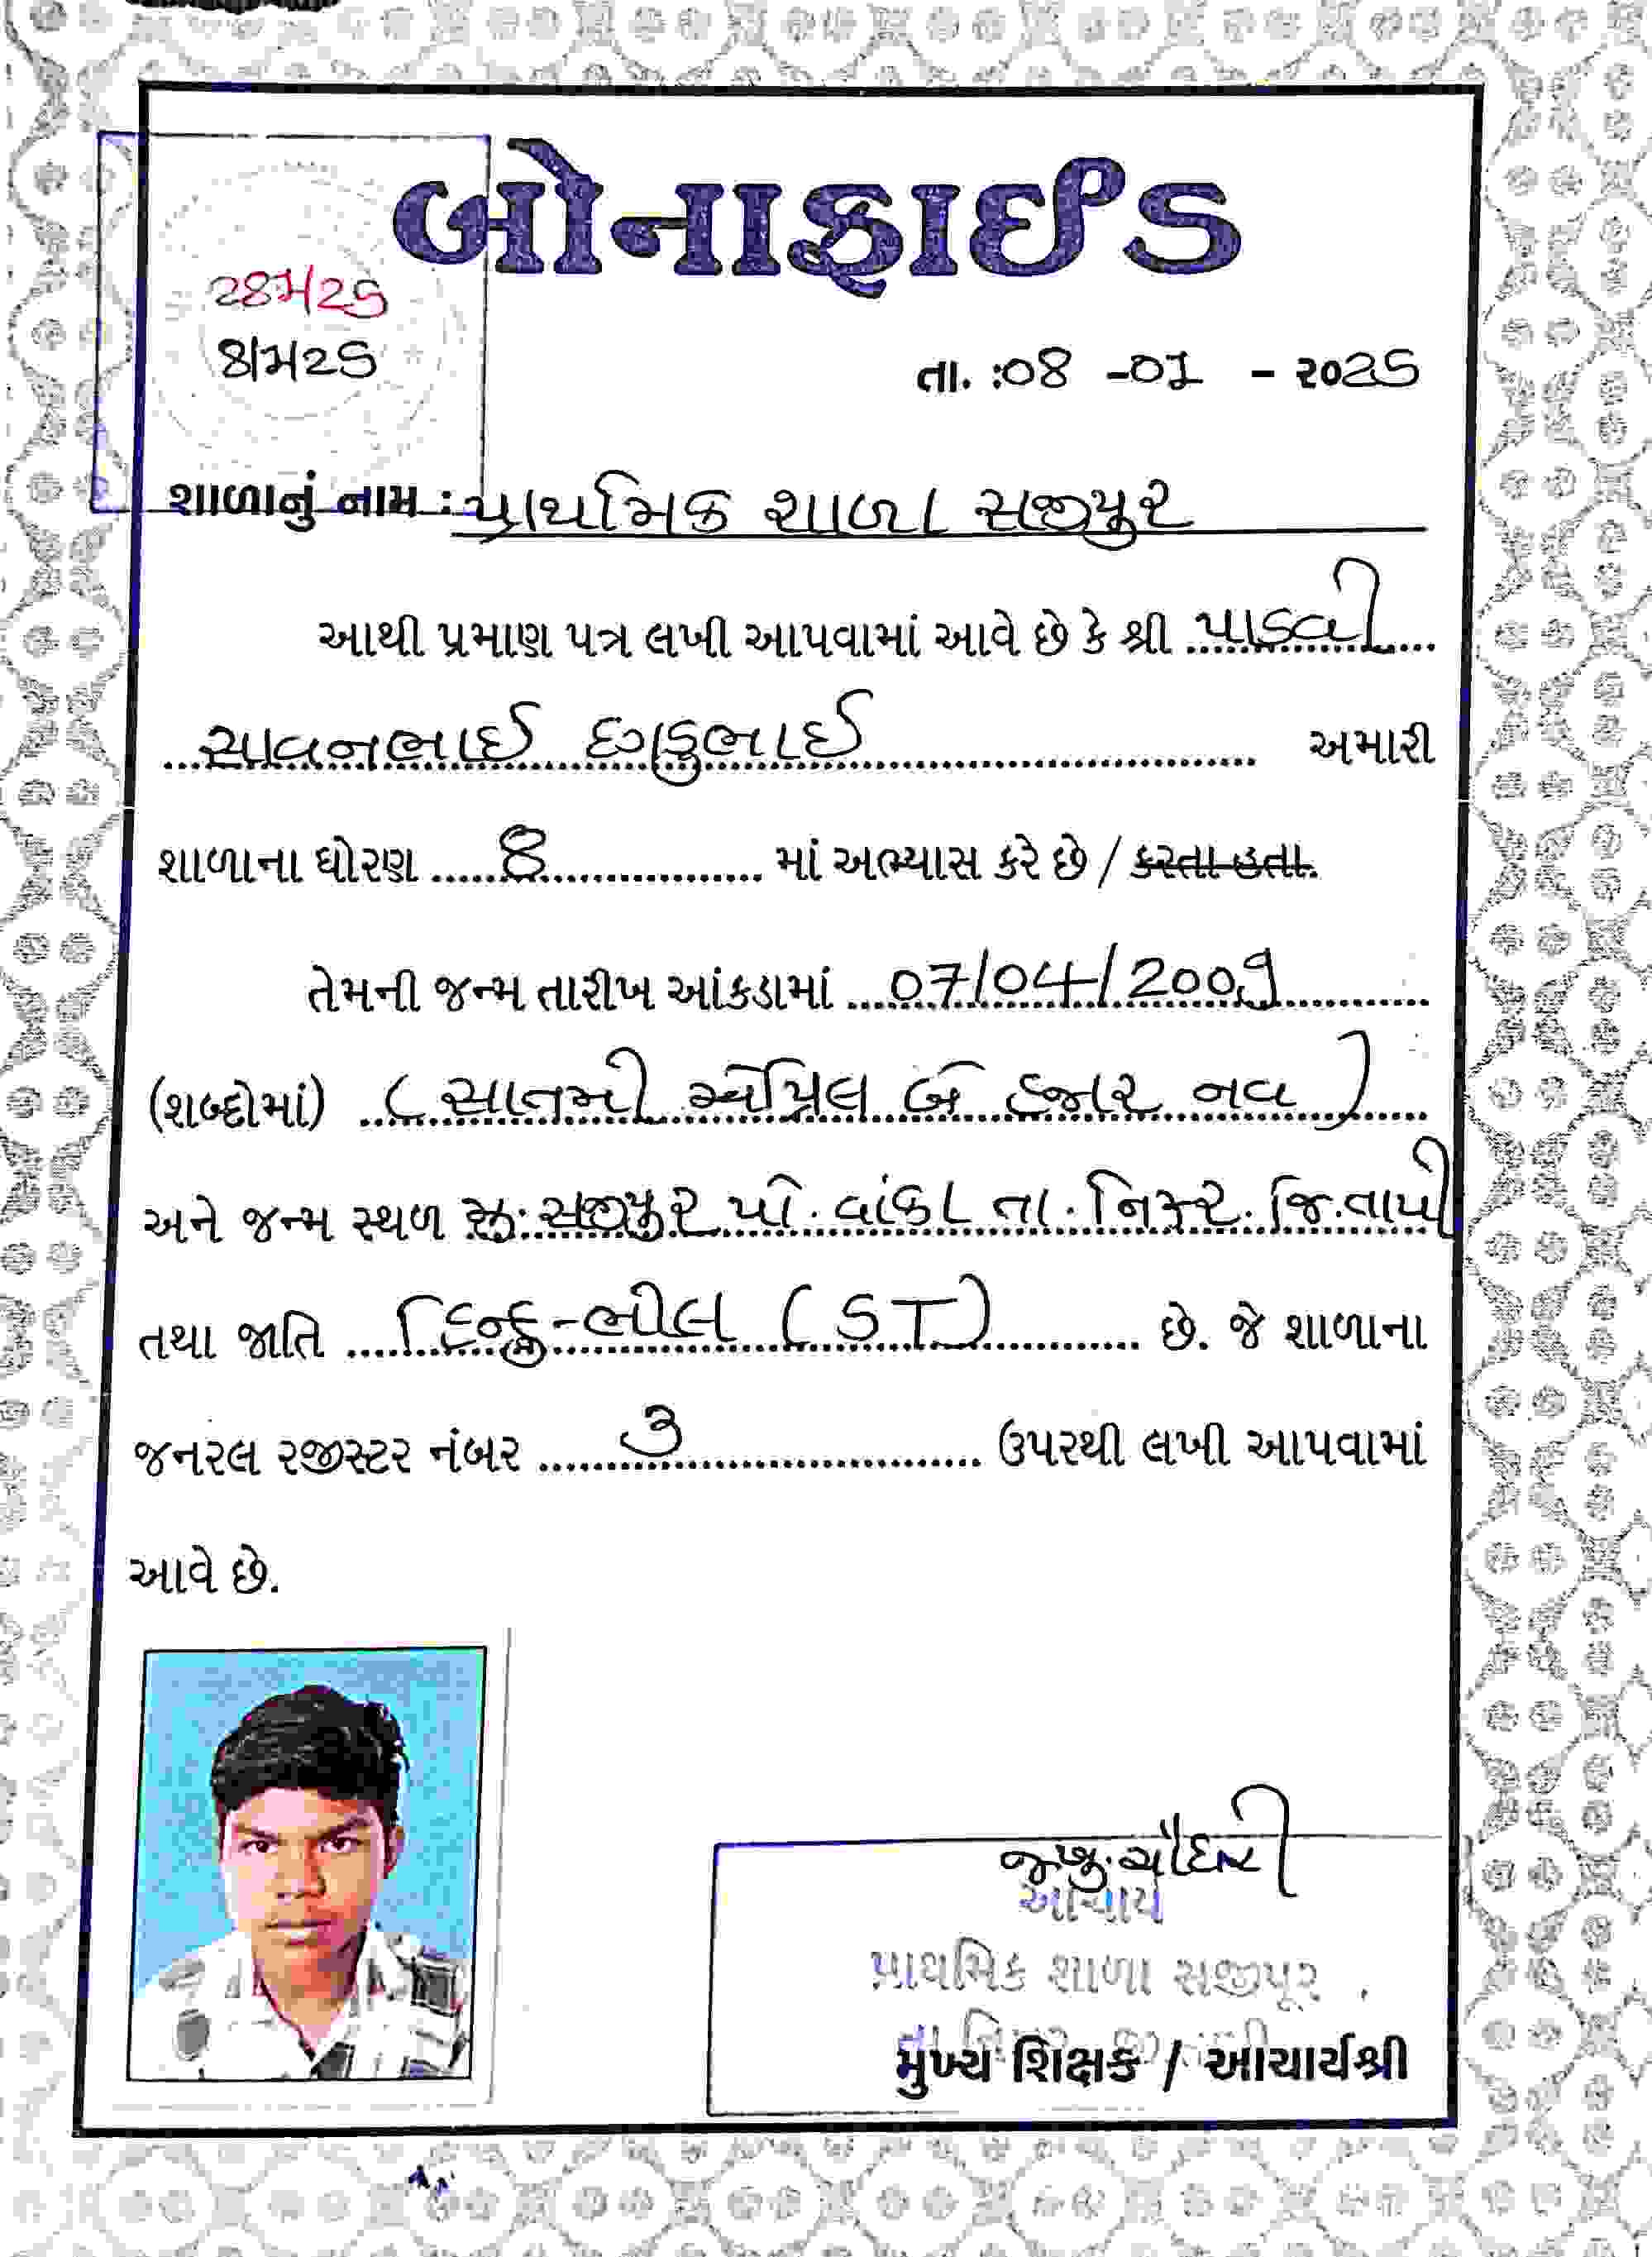 બોનાફાઈડ
તા. :08 -01 - ૨૦25
શાળાનું નામ : પ્રાથમિક શાળા સજીપુર
આથી પ્રમાણ પત્ર લખી આપવામાં આવે છે કે શ્રી પાડવી
સાવનભાઈ દગડુભાઈ અમારી
શાળાના ધોરણ 8 માં અભ્યાસ કરે છે / કરતા હતા.
તેમની જન્મ તારીખ આંકડામાં 07/04/2009
(શબ્દોમાં) (સાતમી એપ્રિલ બે હજાર નવ)
અને જન્મ સ્થળ મુ. સજીપુર પો. વાંકા તા. નિઝર. જિ. તાપી
તથા જાતિ હિન્દુ-ભીલ (ST) છે. જે શાળાના
જનરલ રજીસ્ટર નંબર ૩ ઉપરથી લખી આપવામાં
આવે છે.
આચાર્ય
પ્રાથમિક શાળા સજીપૂર
મુખ્ય શિક્ષક / આચાર્યશ્રી